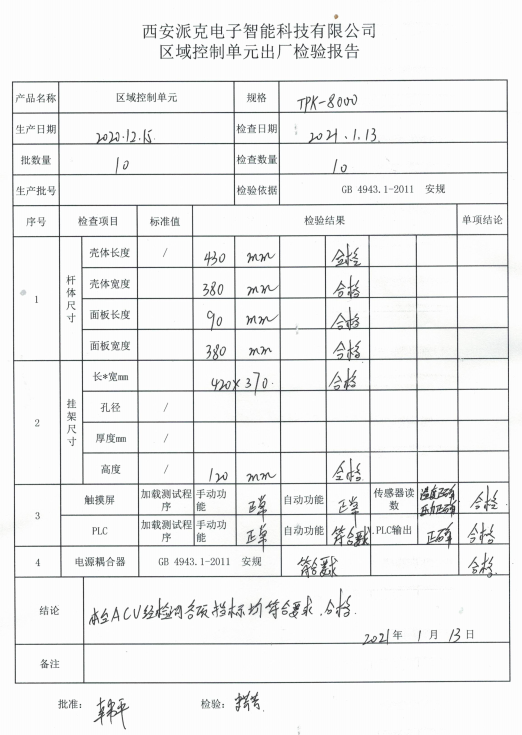 西安派克电子智能科技有限公司
区域控制单元出厂检验报告
产品名称 区域控制单元 规格 TPK-8000
生产日期 2020.12.15. 检查日期 2021.1.13.
批数量 10 检查数量 10
生产批号 检验依据 GB 4943.1-2011 安规
序号 检查项目 标准值 检验结果 单项结论
1 杆体尺寸 壳体长度 / 430 mm 合格
壳体宽度 380 mm 合格
面板长度 90 mm 合格
面板宽度 380 mm 合格
2 挂架尺寸 长*宽mm 420×370. 合格
孔径 /
厚度mm /
高度 / 120 mm 合格
3 触摸屏 加载测试程序 手动功能 正常 自动功能 正常 传感器读数 温度正确 压力正确 合格
PLC 加载测试程序 手动功能 正常 自动功能 符合要求 PLC输出 正确 合格
4 电源耦合器 GB 4943.1-2011 安规 符合要求 合格.
结论 本台ACU经检测各项指标均符合要求.合格.
2021年 1月 13日
备注
批准: 检验: